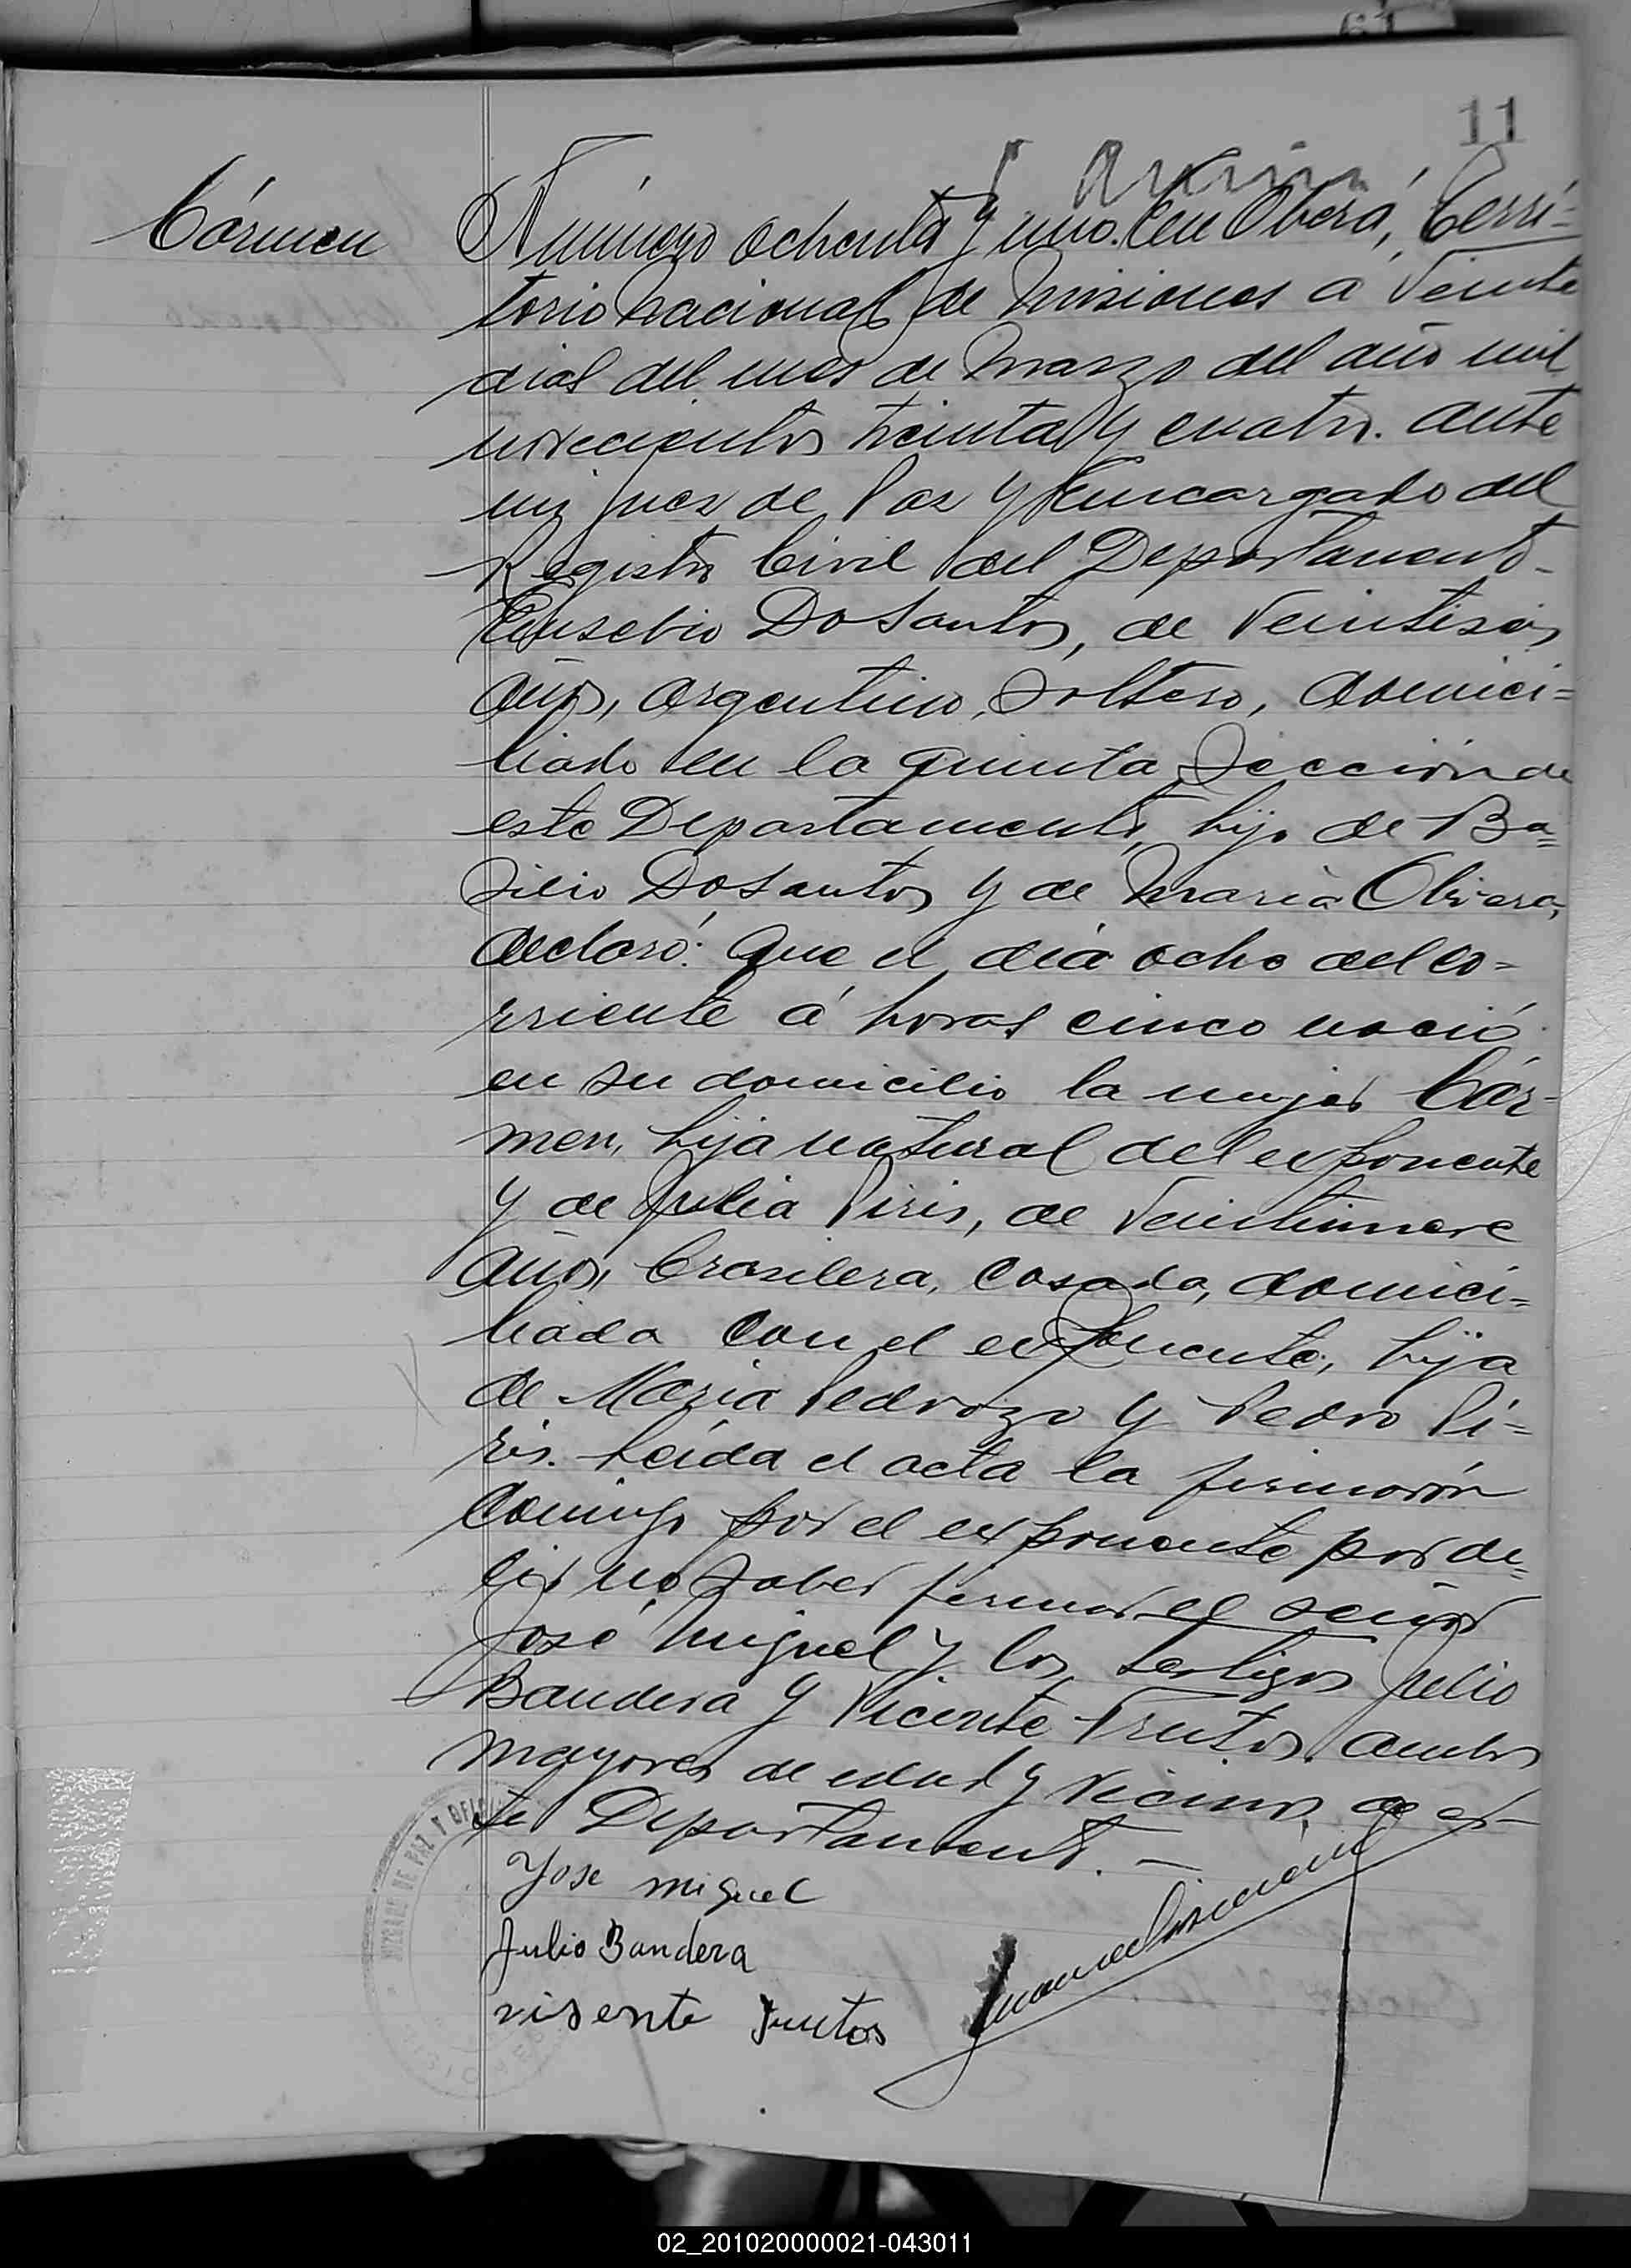 11
Cármen
Número ochenta y uno. En Oberá, Terri=
torio Nacional de Misiones a veinte
dias del mes de Marzo del año mil
novecientos treinta y cuatro. ante
mi Juez de Paz y Encargado del
Registro Civil del Departamento
Eusebio DoSantos, de veintiseis
años, argentino, soltero, domici=
liado en la quinta Sección de
este Departamento, hijo de Ba=
silio DoSantos y de Maria Olivera,
declaró: Que el dia ocho del co=
rriente á horas cinco nació
en su domicilio la mujer Cár=
men, hija natural del exponente
y de Julia Piris, de veintinueve
años, brasilera, casada, domici=
liada con el exponente, hija
de Maria Pedrozo y Pedro Pi=
ris. Leida el acta la firmarón
conmigo por el exponente por de=
cir no saber firmar el señor
José Miguel y los testigos Julio
Bandera y Vicente Frutos ambos
mayores de edad y vecinos de es-
te Departamento.—
Jose miguel
Julio Bandera
visente Frutos
JUZGADO DE PAZ Y
02_201020000021-043011